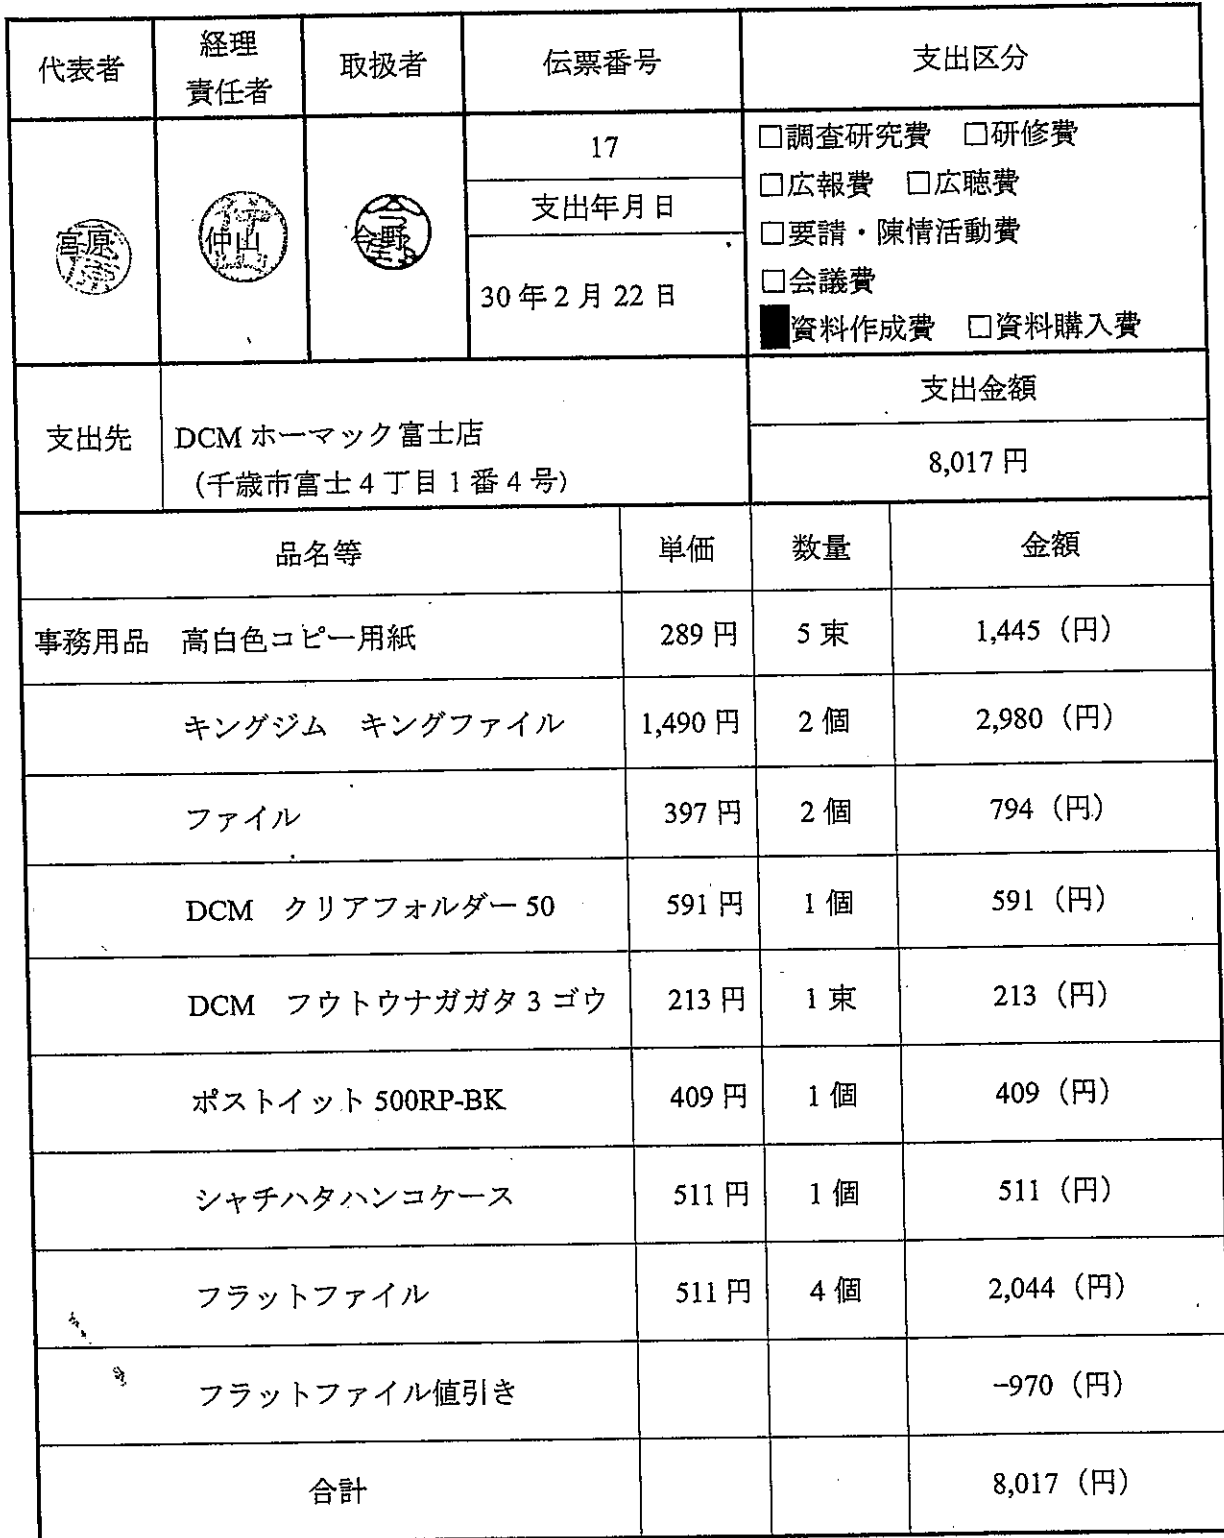 代表者
経理
責任者
取扱者
伝票番号
支出区分
宮原
仲山
今野
17
支出年月日
30年2月22日
□調査研究費　□研修費
□広報費　□広聴費
□要請・陳情活動費
□会議費
■資料作成費　□資料購入費
支出先
DCMホーマック富士店
(千歳市富士4丁目1番4号)
支出金額
8,017円
品名等　単価　数量　金額
事務用品　高白色コピー用紙　289円　5束　1,445（円）
キングジム　キングファイル　1,490円　2個　2,980（円）
ファイル　397円　2個　794（円）
DCM　クリアフォルダー50　591円　1個　591（円）
DCM　フウトウナガガタ3ゴウ　213円　1束　213（円）
ポストイット500RP-BK　409円　1個　409（円）
シャチハタハンコケース　511円　1個　511（円）
フラットファイル　511円　4個　2,044（円）
フラットファイル値引き　−970（円）
合計　8,017（円）